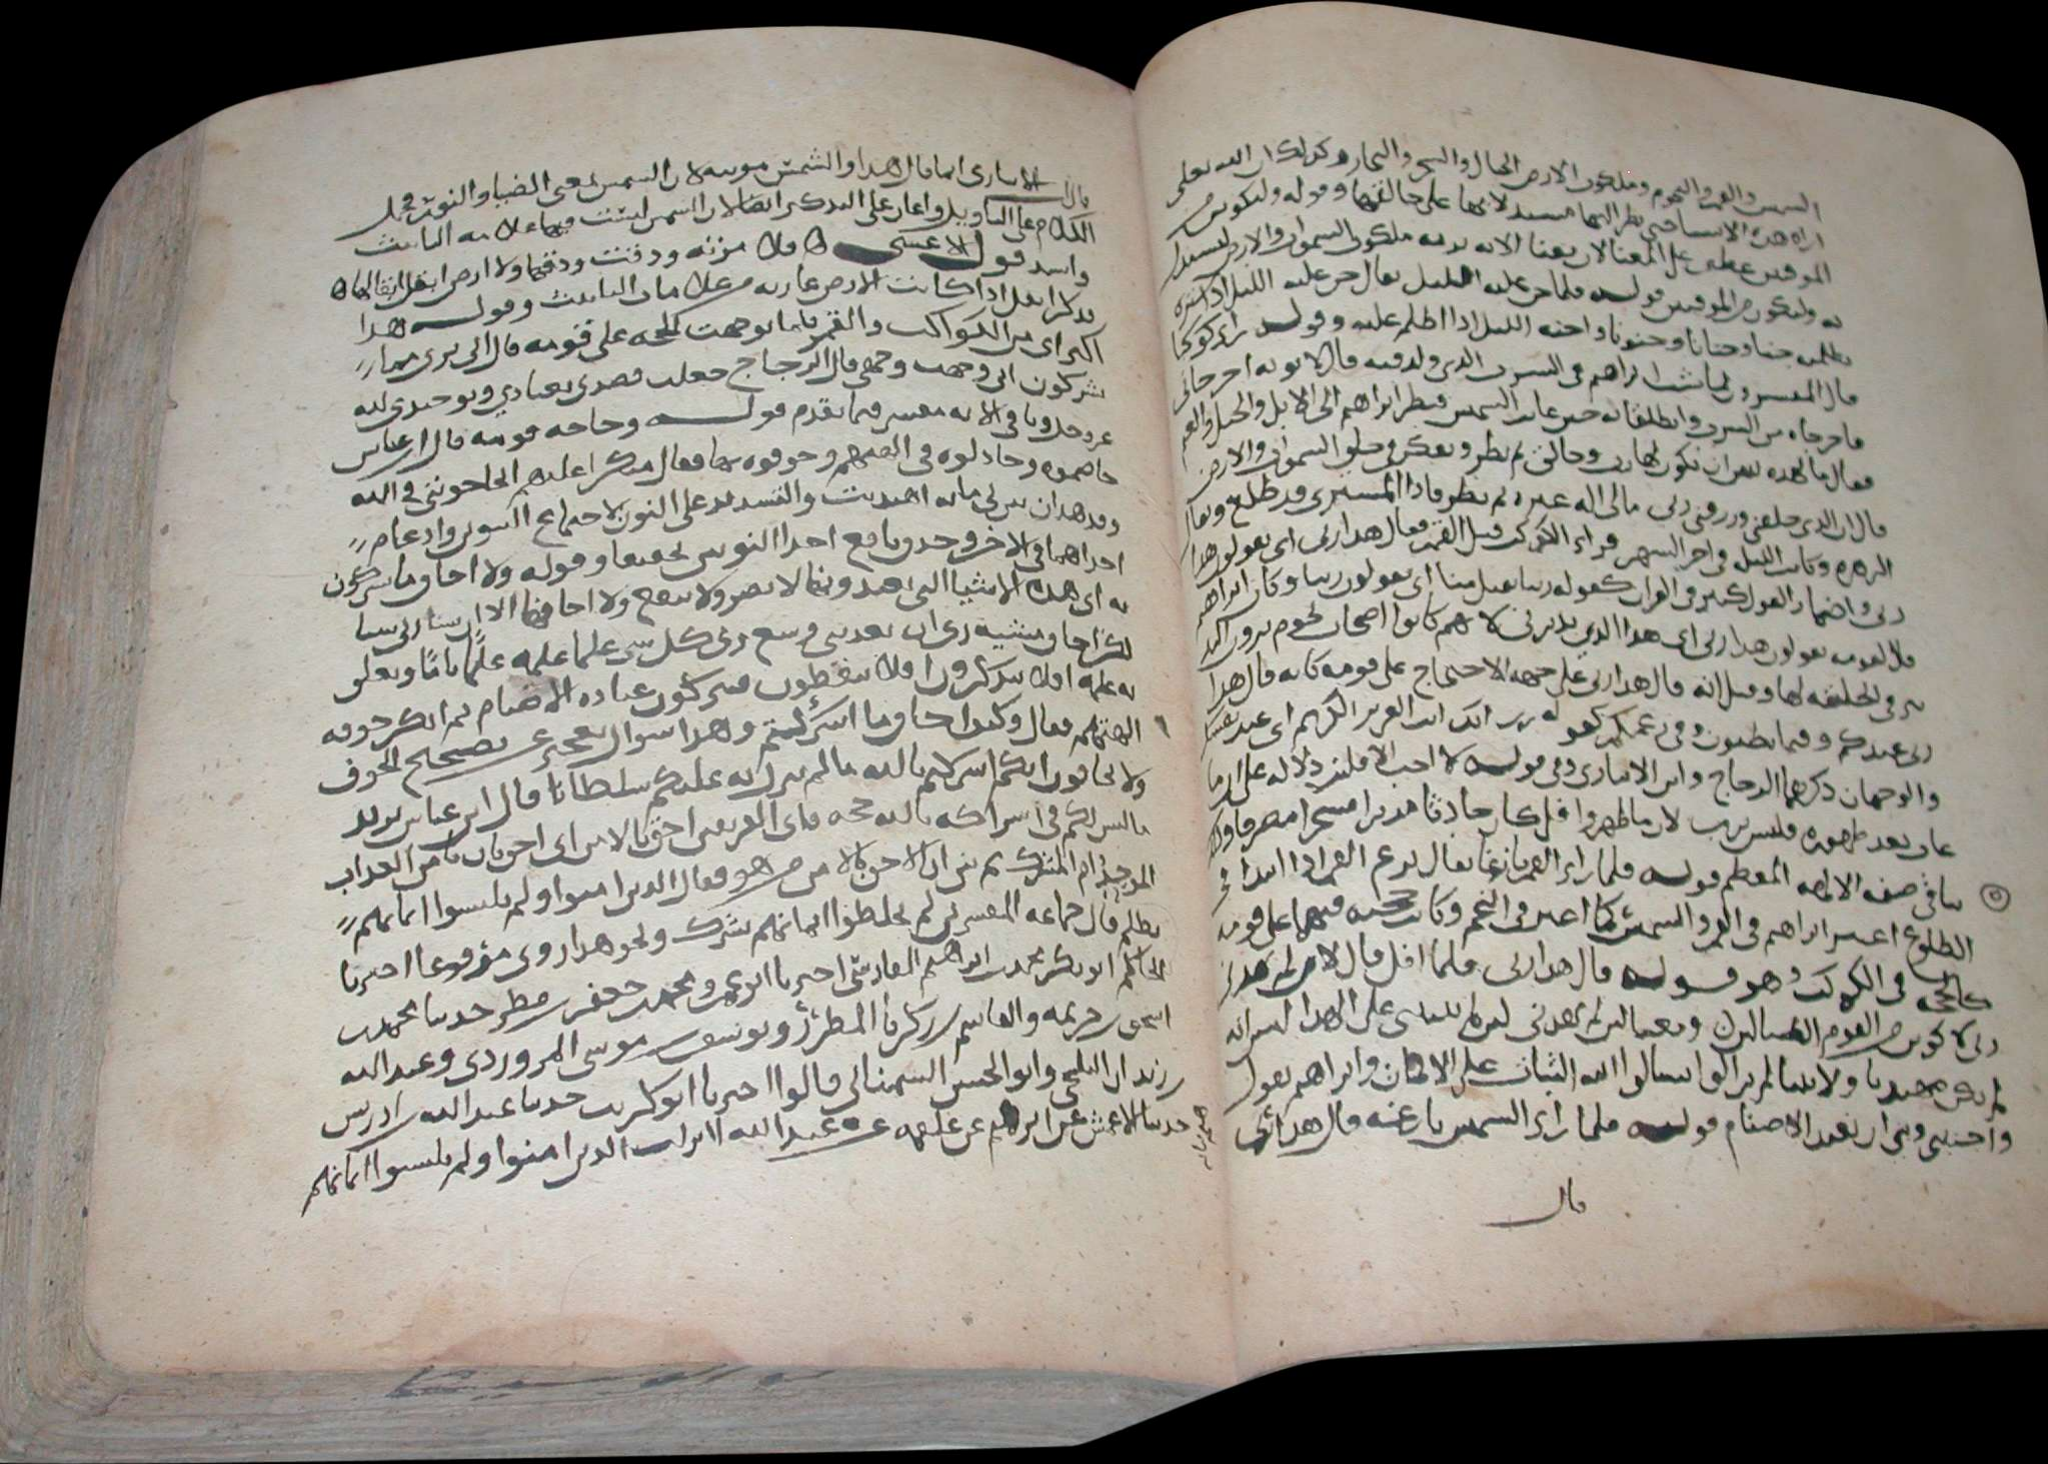 الشمس والقمر والنجوم وملكوت الارض الجبال والشجر والبحار وكذلك ان الله تعالى
اراه هذه الاشيا حتى نظر اليها مستدلا بها على خالقها وقوله وليكون من
الموقنين عطف على المعنا لان معنا الايه نريه ملكوت السموات والارض ليستدل
به وليكون من الموقنين قوله فلما جن عليه الليل يقال جن عليه الليل اذا ستره
بظلمه جنا وجنانا وجنونا واجنه الليل اذا اظلم عليه وقوله راى كوكبا
قال المفسرون لما شب ابراهيم في السرب الذي ولد فيه قال لابويه اخرجاني
فاخرجاه من السرب وانطلقا به حين غابت الشمس فنظر ابراهيم الى الابل والخيل والغنم
فقال ما لهذه بد من ان يكون لها رب وخالق ثم نظر وتفكر في خلق السموات والارض
قال ان الذي خلقني ورزقني ربي مالي اله غيره ثم نظر فاذا المشتري قد طلع ويقال
الزهره وكانت الليله في اخر الشهر فراى الكوكب قبل القمر فقال هذا ربي اى يقولون هذا
ربي واضمار القول كثير في القران كقوله ربنا تقبل منا اى يقولون ربنا وكان ابراهيم
قال لقومه يقولون هذا ربي اى هذا الذي يدبرني لانهم كانوا اصحاب نجوم يرون التد
بير في الخليقه لها وقيل انه قال هذا ربي على جهه الاحتجاج على قومه كانه قال هذا
ربي عندكم وفيما تظنون وفي زعمكم كقوله ذق انك انت العزيز الكريم اى عند نفسك
والوجهان ذكرهما الزجاج وابن الانباري وفي قوله لا احب الافلين دلاله على ان ما
غاب بعد ظهوره فليس برب لان ما ظهر وافل كان حادثا مدبرا مسخرا مصرفا وذلك
ينافي صفه الاله المعظم قوله فلما راى القمر بازغا يقال بزغ القمر اذا ابتدا في
الطلوع اعتبر ابراهيم في القمر والشمس كما اعتبر في النجم وكانت حجته فيهما على قومه
كالحجه في الكوكب وهو قوله قال هذا ربي فلما افل قال لئن لم يهدني
ربي لاكونن من القوم الضالين ومعنا لئن لم يهدني لئن لم يثبتني على الهدا ليس انه
لم يكن مهتديا والانبيا لم يزالوا يسالوا الله الثبات على الايمان وابراهيم يقول
واجنبني وبني ان نعبد الاصنام قوله فلما راى الشمس بازغه قال هذا ربي
قال
قال الانباري انما قال هذا والشمس مونثه لان الشمس بمعنى الضيا والنور فحمل
الكلام على التاويل واعان على التذكير ايضا لان الشمس ليست فيها علامه التانيث
واشد قول الاعشى فلا مزنه ودقت ودقها ولا ارض ابقل ابقالها
ذكر ابقل اذ كانت الارض عاريه من علامات التانيث وقوله هذا
اكبر اى من الكواكب والقمر فلما توجهت الحجه على قومه قال اني برى مما
تشركون اني وجهت وجهي قال الزجاج جعلت قصدي بعبادتي وتوحيدي لله
عز وجل وباقي الايه مفسر فيما تقدم قوله وحاجه قومه قال ابن عباس
خاصموه وجادلوه في الهتهم وخوفوه بها فقال منكرا عليهم اتحاجونني في الله
وقد هدان بين لي ما به اهتديت والتشديد على النون لاجتماع النونين وادغام
احداهما في الاخر وحذف نافع احدا النونين تخفيفا وقوله ولا اخاف ما تشركون
به اى هذه الاشيا التي تعبدونها لا تضر ولا تنفع ولا اخافها الا ان يشا ربي شيا
لكن اخاف مشيه ربي ان يعذبني وسع ربي كل شي علما علمه علما تاما وتعلق
به علمه افلا تتذكرون افلا تتعظون فتتركون عباده الاصنام ثم انكر خوفه
الهتهم فقال وكيف اخاف ما اشركتم وهذا سوال تعجيز عن تصحيح الخوف
ولا تخافون انكم اشركتم بالله ما لم ينزل به عليكم سلطانا قال ابن عباس يريد
ما ليس لكم في اشراكه بالله حجه فاى الفريقين احق بالامن اى احق بان يامن العذاب
الموحد ام المشرك ثم بين ان الاحق بالامن من هو فقال الذين امنوا ولم يلبسوا ايمانهم
بظلم قال جماعه المفسرين لم يخلطوا ايمانهم بشرك ونحو هذا روى مرفوعا اخبرنا
الحاكم ابو بكر محمد بن ابراهيم الفارسي اخبرنا ابو عمرو محمد بن جعفر بن مطر حدثنا محمد بن
اسحق بن خزيمه والقاسم بن زكريا المطرز ويوسف بن موسى المروروذي وعبد الله
بن زيدان البجلي وابو الحسن السمناني قالوا اخبرنا ابو كريب حدثنا عبد الله بن ادريس
حدثنا الاعمش عن ابرهيم عن علقمه عن عبد الله الذين امنوا ولم يلبسوا ايمانهم